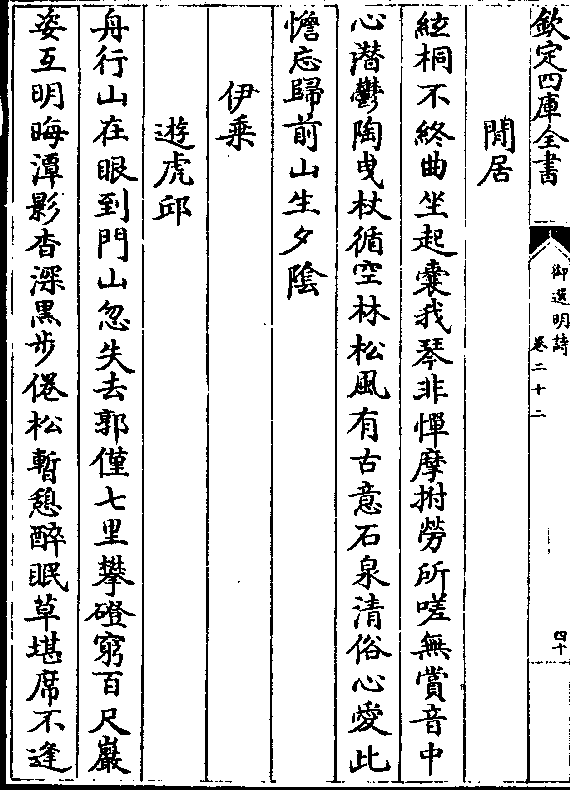 欽定四庫全書
御選明詩
卷二十二
四十
閒居
絃桐不終曲坐起囊我琴非憚摩拊勞所嗟無賞音中
心潛鬱陶曳杖循空林松風有古意石泉清俗心愛此
憺忘歸前山生夕陰
伊乗
遊虎邱
舟行山在眼到門山忽失去郭僅七里攀磴窮百尺巖
姿互明晦潭影杳深黒步倦松暫憩醉眠草堪席不逢